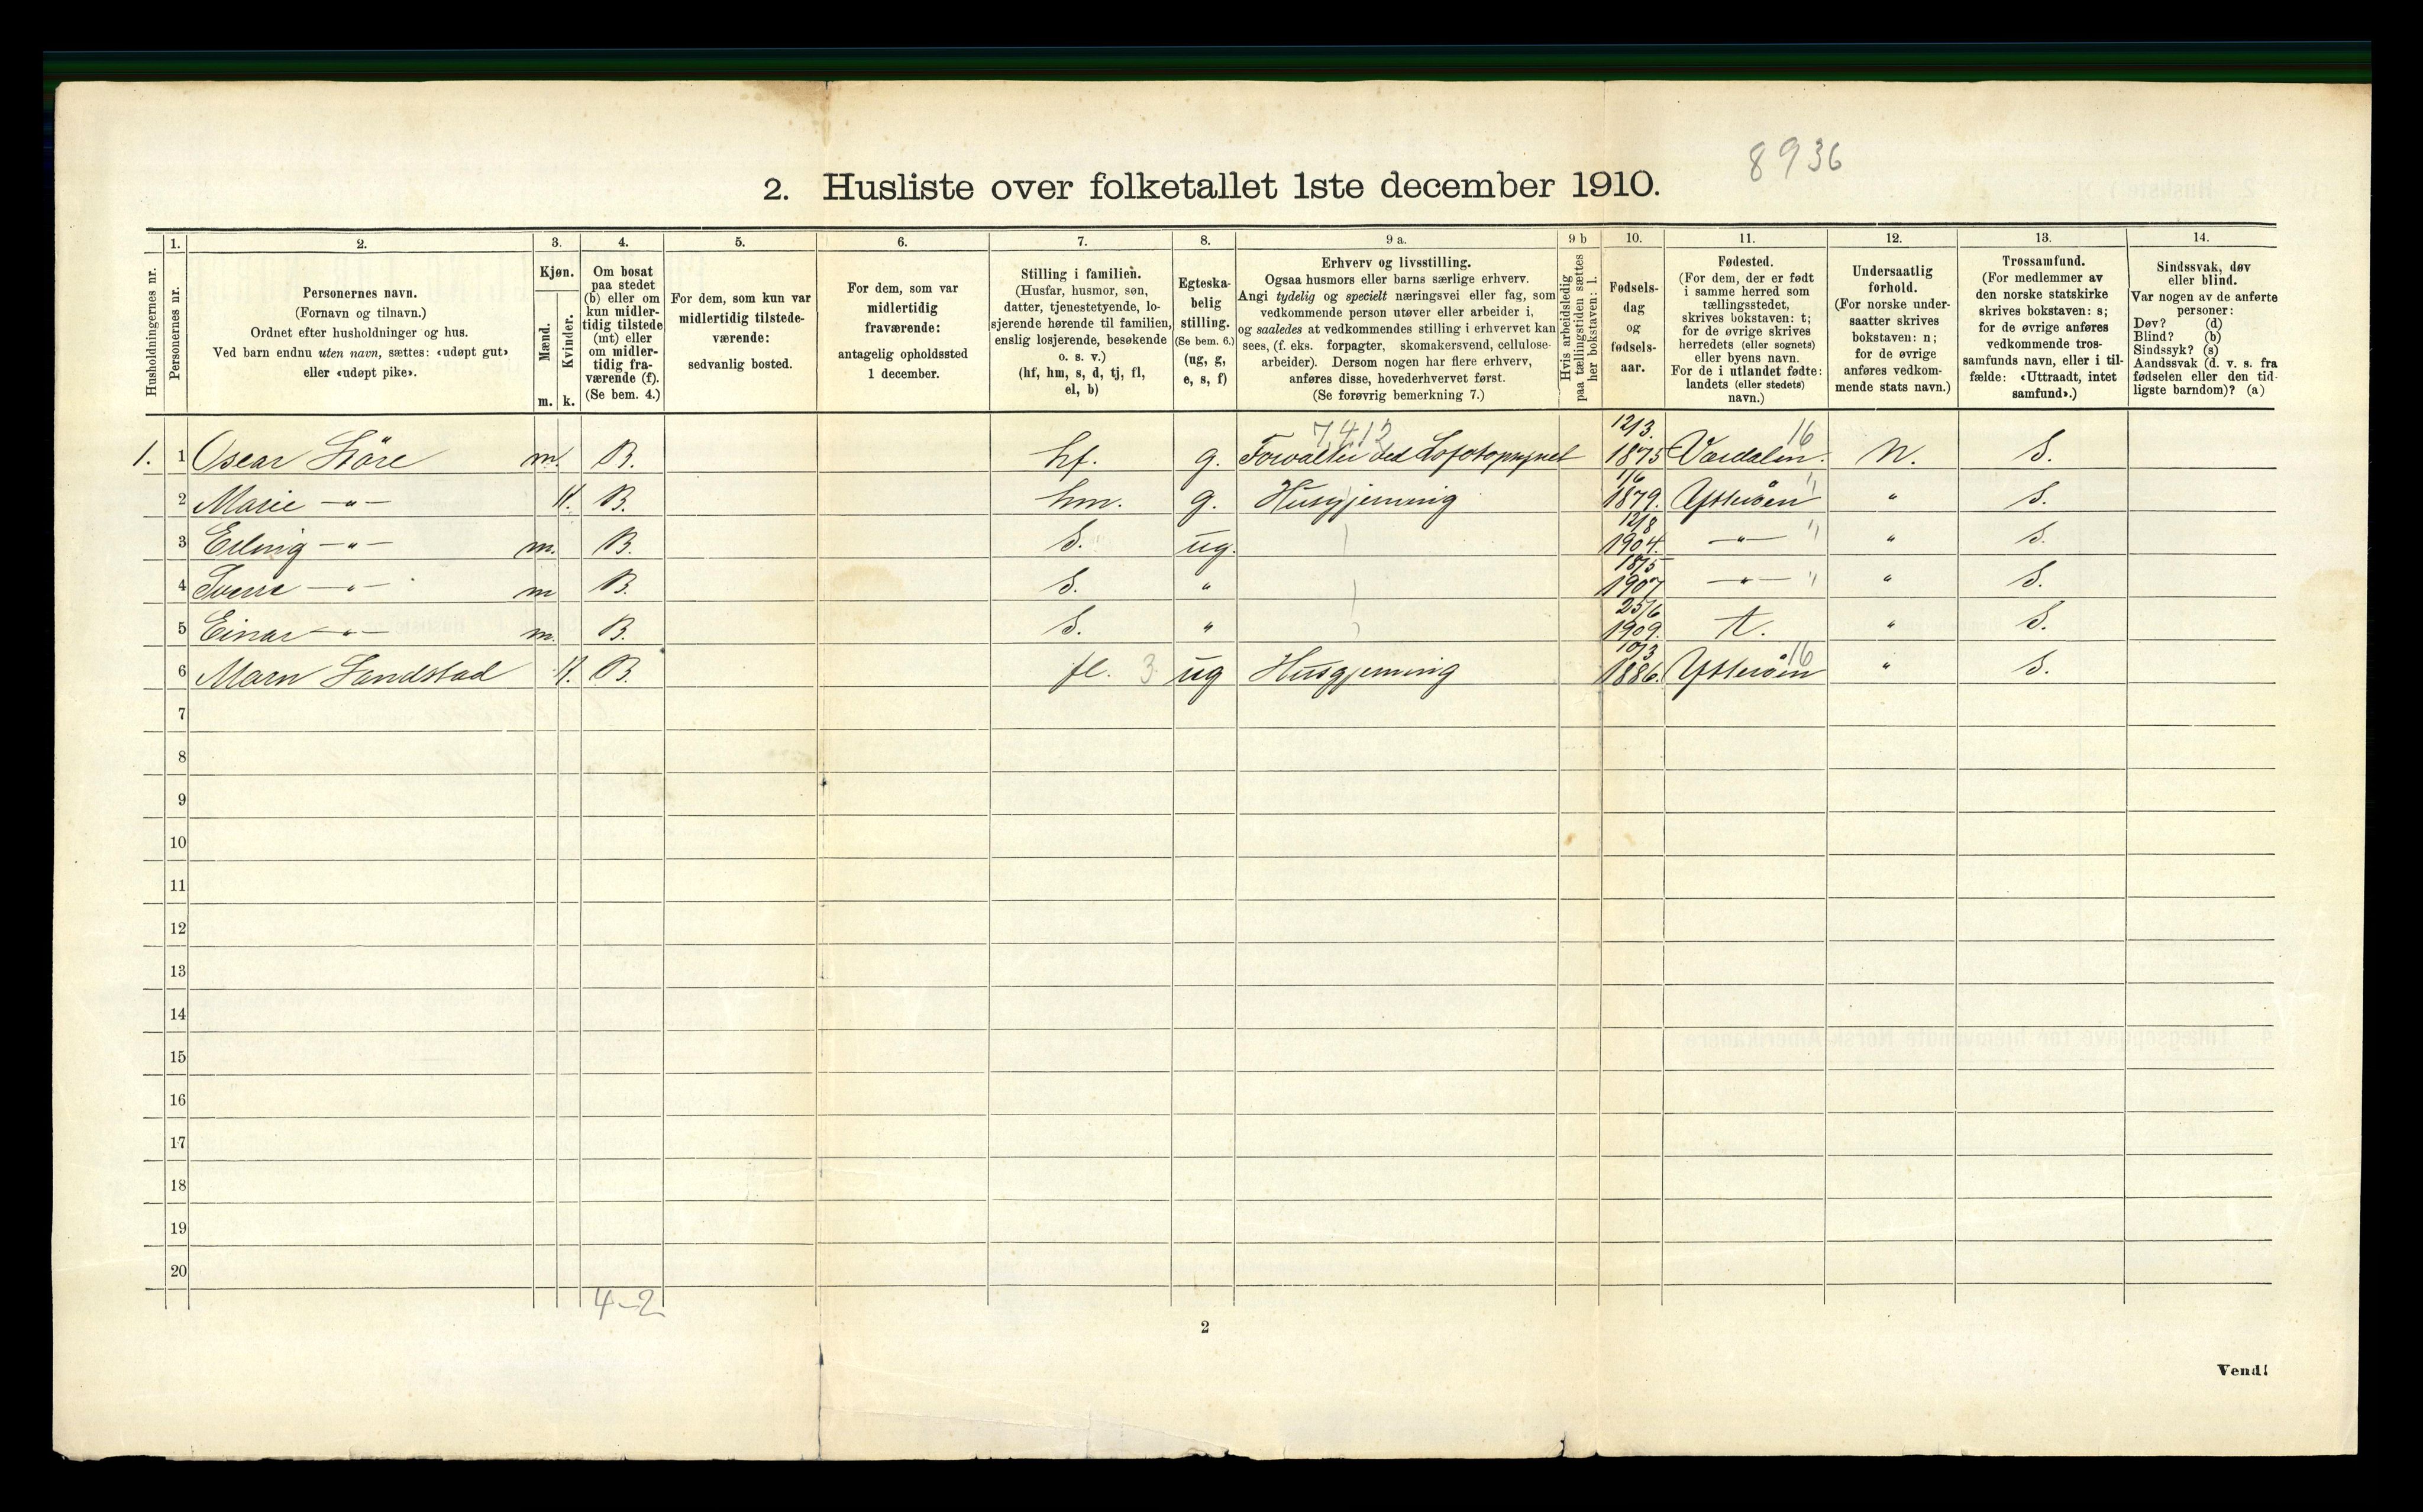 8936
2. Husliste over folketallet 1ste december 1910.
Husholdningernes nr.
1.
Personernes nr.
2.
Personernes navn.
(Fornavn og tilnavn.)
Ordnet efter husholdninger og hus.
Ved barn endnu uten navn, sættes: «udøpt gut»
eller «udøpt pike».
3.
Kjøn.
Mænd.
Kvinder.
m. k.
4.
Om bosat
paa stedet
(b) eller om
kun midler-
tidig tilstede
(mt) eller
om midler-
tidig fra-
værende (f).
(Se bem. 4.)
5.
For dem, som kun var
midlertidig tilstede-
værende:
sedvanlig bosted.
6.
For dem, som var
midlertidig
fraværende:
antagelig opholdssted
1 december.
7.
Stilling i familien.
(Husfar, husmor, søn,
datter, tjenestetyende, lo-
sjerende hørende til familien,
enslig losjerende, besøkende
o. s. v.)
(hf, hm, s, d, tj, fl,
el, b)
8.
Egteska-
belig
stilling.
(Se bem. 6.)
(ug, g,
e, s, f)
9 a.
Erhverv og livsstilling.
Ogsaa husmors eller barns særlige erhverv.
Angi tydelig og specielt næringsvei eller fag, som
vedkommende person utøver eller arbeider i,
og saaledes at vedkommendes stilling i erhvervet kan
sees, (f. eks. forpagter, skomakersvend, cellulose-
arbeider). Dersom nogen har flere erhverv,
anføres disse, hovederhvervet først.
(Se forøvrig bemerkning 7.)
9 b
Hvis arbeidsledig
paa tællingstiden sættes
her bokstaven: l.
10.
Fødsels-
dag
og
fødsels-
aar.
11.
Fødested.
(For dem, der er født
i samme herred som
tællingsstedet,
skrives bokstaven: t;
for de øvrige skrives
herredets (eller sognets)
eller byens navn.
For de i utlandet fødte:
landets (eller stedets)
navn.)
12.
Undersaatlig
forhold.
(For norske under-
saatter skrives
bokstaven: n;
for de øvrige
anføres vedkom-
mende stats navn.)
13.
Trossamfund.
(For medlemmer av
den norske statskirke
skrives bokstaven: s;
for de øvrige anføres
vedkommende tros-
samfunds navn, eller i til-
fælde: «Uttraadt, intet
samfund».)
14.
Sindssvak, døv
eller blind.
Var nogen av de anførte
personer:
Døv? (d)
Blind? (b)
Sindssyk? (s)
Aandssvak (d. v. s. fra
fødselen eller den tid-
ligste barndom)? (a)
7412 12/3. 16
1. 1 Oscar Störe m. B. hf. g. Forvalter ved Lofotopsynet 1875 Værdalen. N. S.
1/6 "
2 Marie -"- K. B. hm. g. Husgjerning 1879. Ytterøen " S.
12/8
3 Erling -"- m. B. S. ug. 1904. -"- " " S.
18/5
4 Sverre -"- m B. S. " 1907 -"- " " S.
25/6
5 Einar -"- m. B. S. " 1909. t. " S.
10/3 16
6 Marn Sandstad K. B. fl. 3. ug Husgjerning 1886. Ytterøen " S.
7
8
9
10
11
12
13
14
15
16
17
18
19
20
4-2
2
Vend!